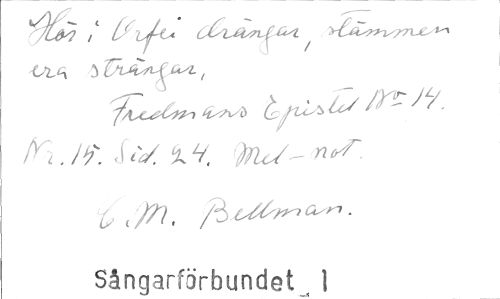 Hör i Orfei drängar, stämmen
era strängar,
Fredmans Epistel No 14.
Nr. 15. Sid. 24. Mel-not.
C. M. Bellman.
Sångarförbundet 1